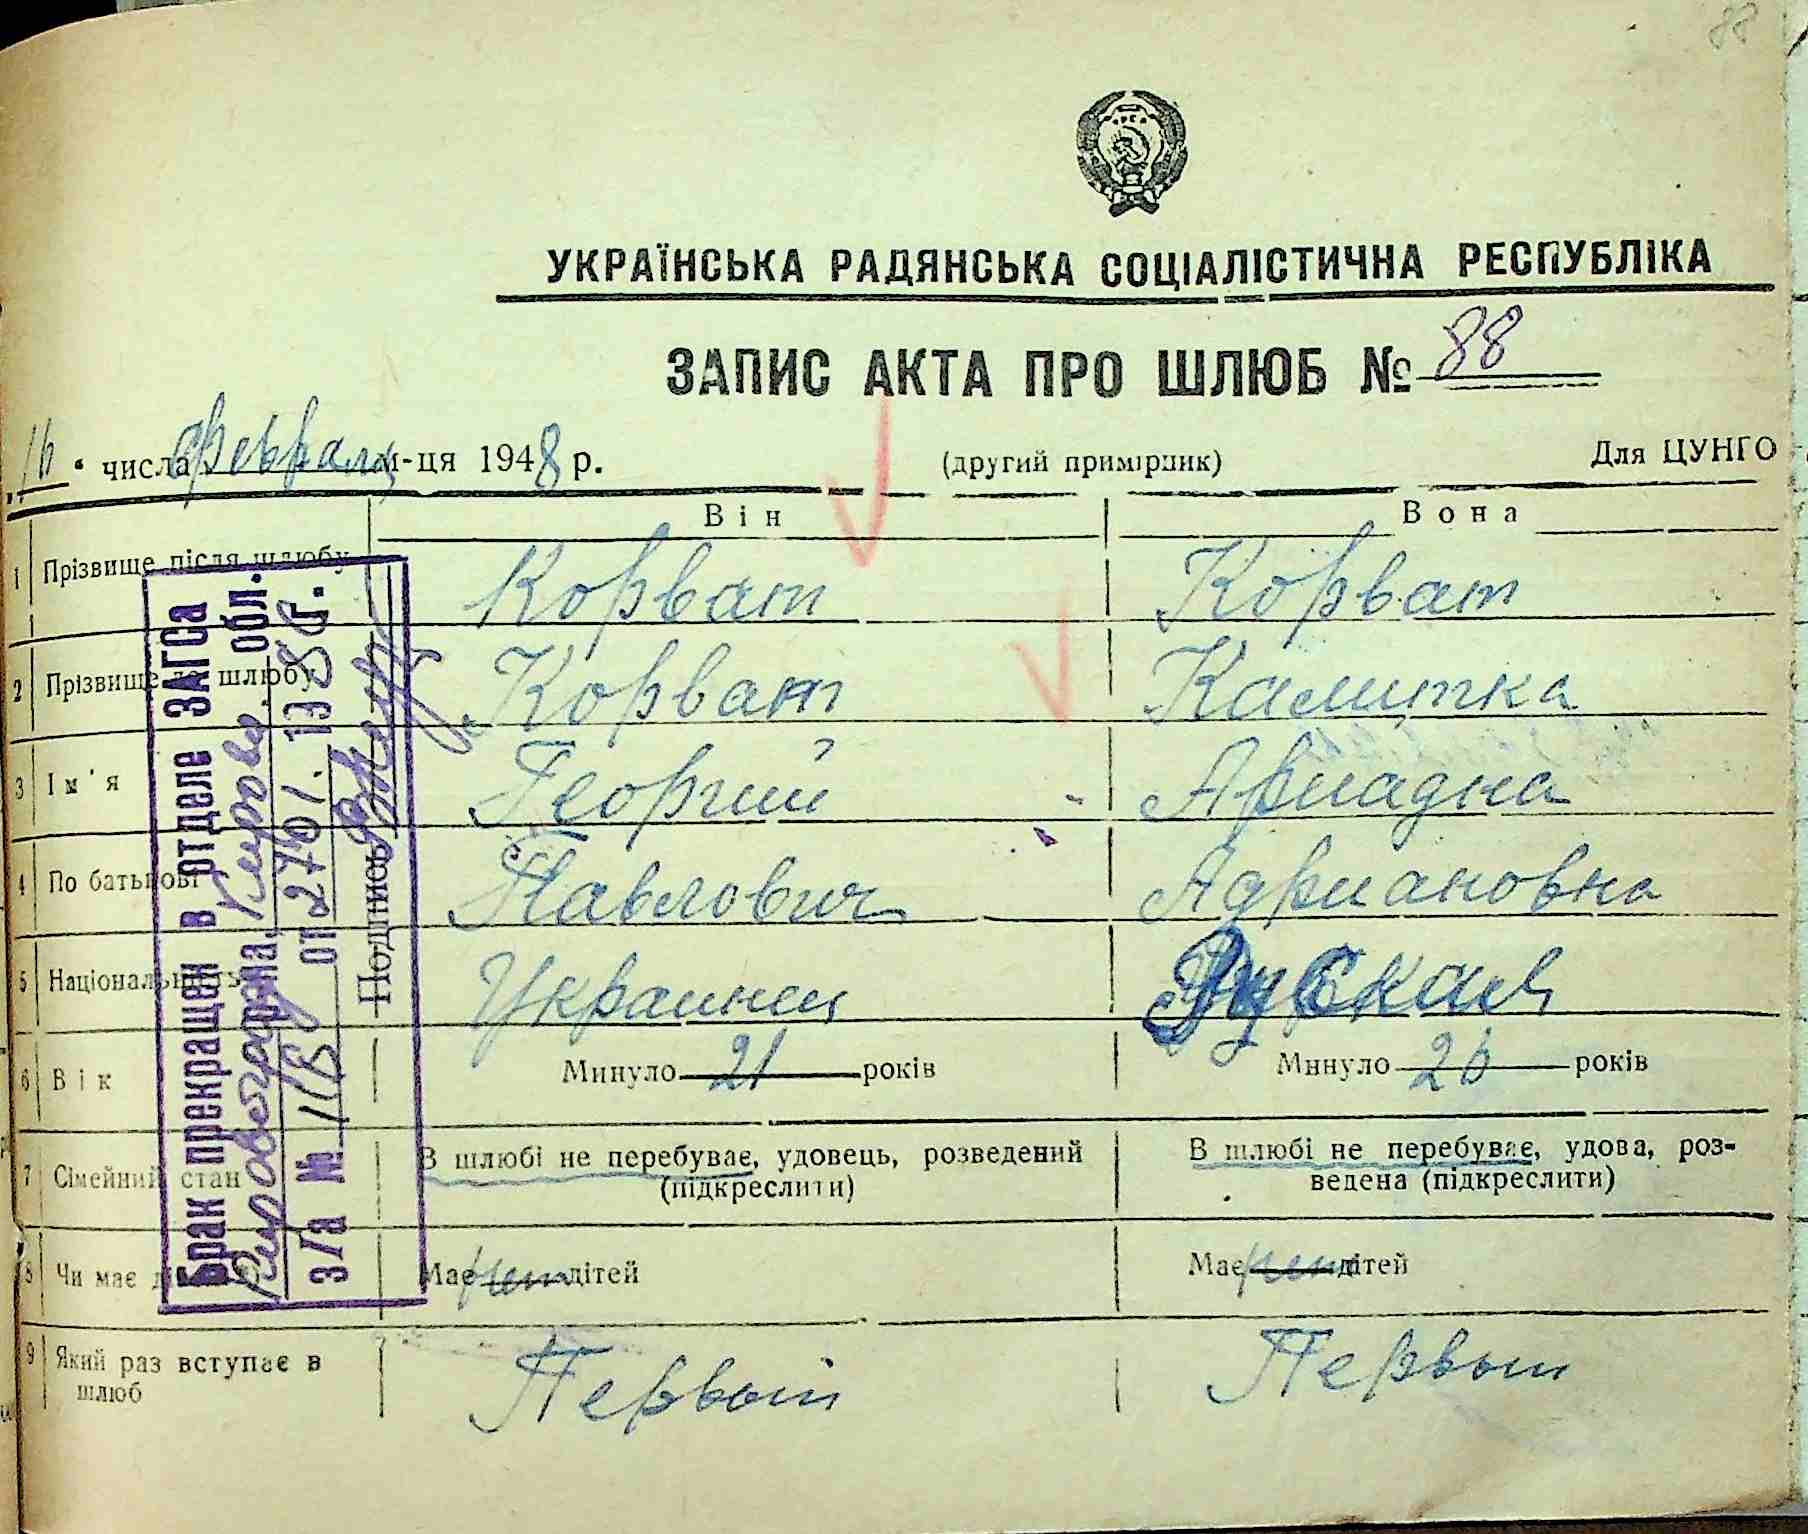 88
УКРАЇНСЬКА РАДЯНСЬКА СОЦІАЛІСТИЧНА РЕСПУБЛІКА
ЗАПИС АКТА ПРО ШЛЮБ № 88
„16“ числа февраля м-ця 1948 р. (другий примірник) Для ЦУНГО
Він Вона
1 Прізвище після шлюбу Корват Корват
2 Прізвище до шлюбу Корват Калитка
3 Ім'я Георгий Ариадна
4 По батькові Павлович Адриановна
5 Національність Украинец Руская
6 Вік Минуло 21 років Минуло 26 років
7 Сімейний стан В шлюбі не перебуває, удовець, розведений В шлюбі не перебуває, удова, роз-
(підкреслити) ведена (підкреслити)
8 Чи має дітей Має нет дітей Має нет дітей
9 Який раз вступає в Первый Первый
шлюб
Брак прекращен в отделе ЗАГСа
Кировоградна, Кирове. обл.
з/а № 118 от 27/01. 1958г.
Подпись